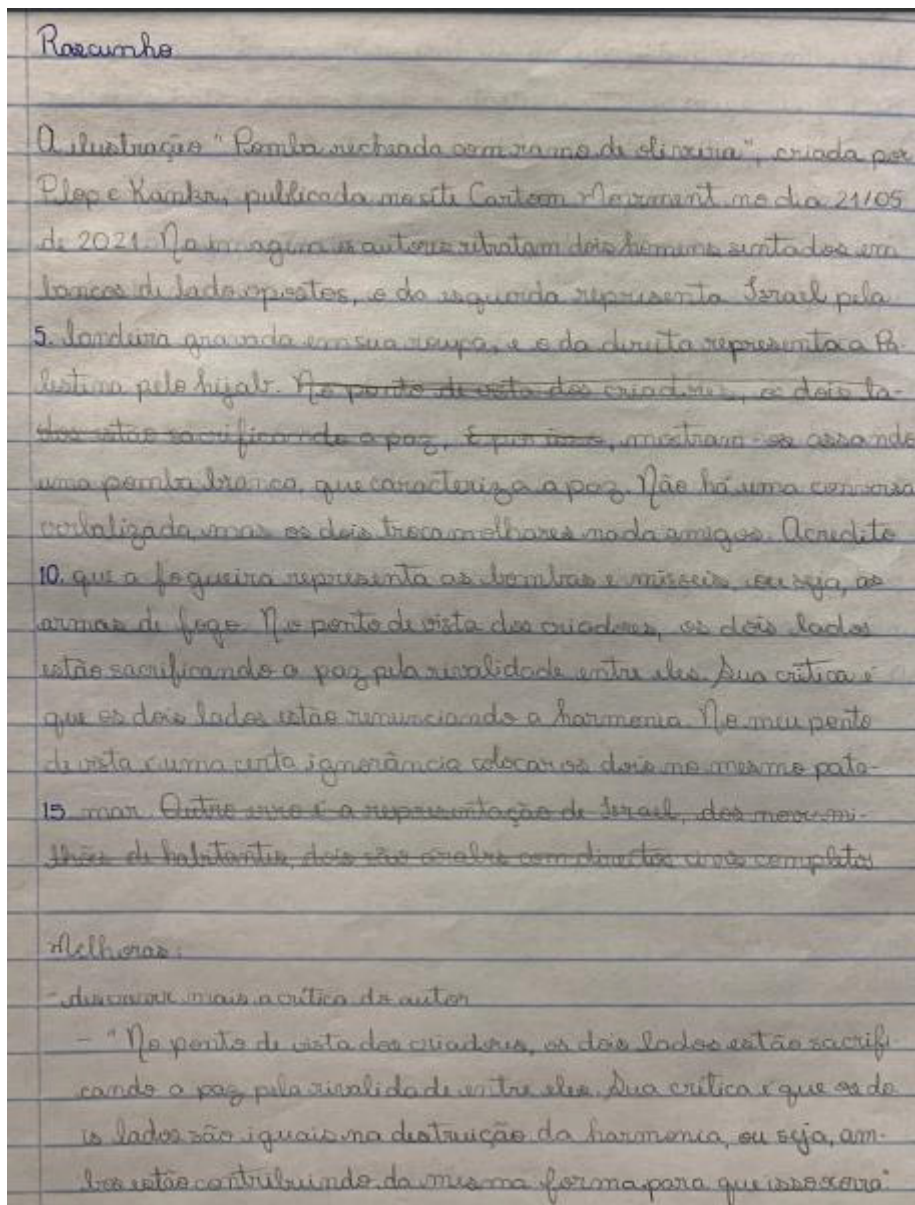 Rascunho
A ilustração "Pomba recheada com ramo de oliveira", criada por
Plop e Kankr, publicada no site Cartoon Movement no dia 21/05
de 2021. Na imagem os autores retratam dois homens sentados em
bancos de lado opostos, o da esquerda representa Israel pela
5. bandeira gravada em sua roupa, e o da direita representa a Pa-
lestina pelo hijab. No ponto de vista dos criadores, os dois la-
dos estão sacrificando a paz, É por isso, mostram-os assando
uma pomba branca, que caracteriza a paz. Não há uma conversa
verbalizada, mas os dois trocam olhares nada amigos. Acredito
10. que a fogueira representa as bombas e misseis, ou seja, as
armas de fogo. No ponto de vista dos criadores, os dois lados
estão sacrificando a paz pela rivalidade entre eles. Sua crítica é
que os dois lados estão renunciando a harmonia. No meu ponto
de vista é uma certa ignorância colocar os dois no mesmo pata-
15 mar. Outro erro é a representação de Israel, dos nove mi-
lhões de habitantes, dois são arabes com direitos civis completos
Melhoras:
- mais a crítica do autor
- "No ponto de vista dos criadores, os dois lados estão sacrifi-
cando a paz pela rivalidade entre eles. Sua crítica é que os do
is lados são iguais na destruição da harmonia, ou seja, am-
bos estão contribuindo da mesma forma para que isso